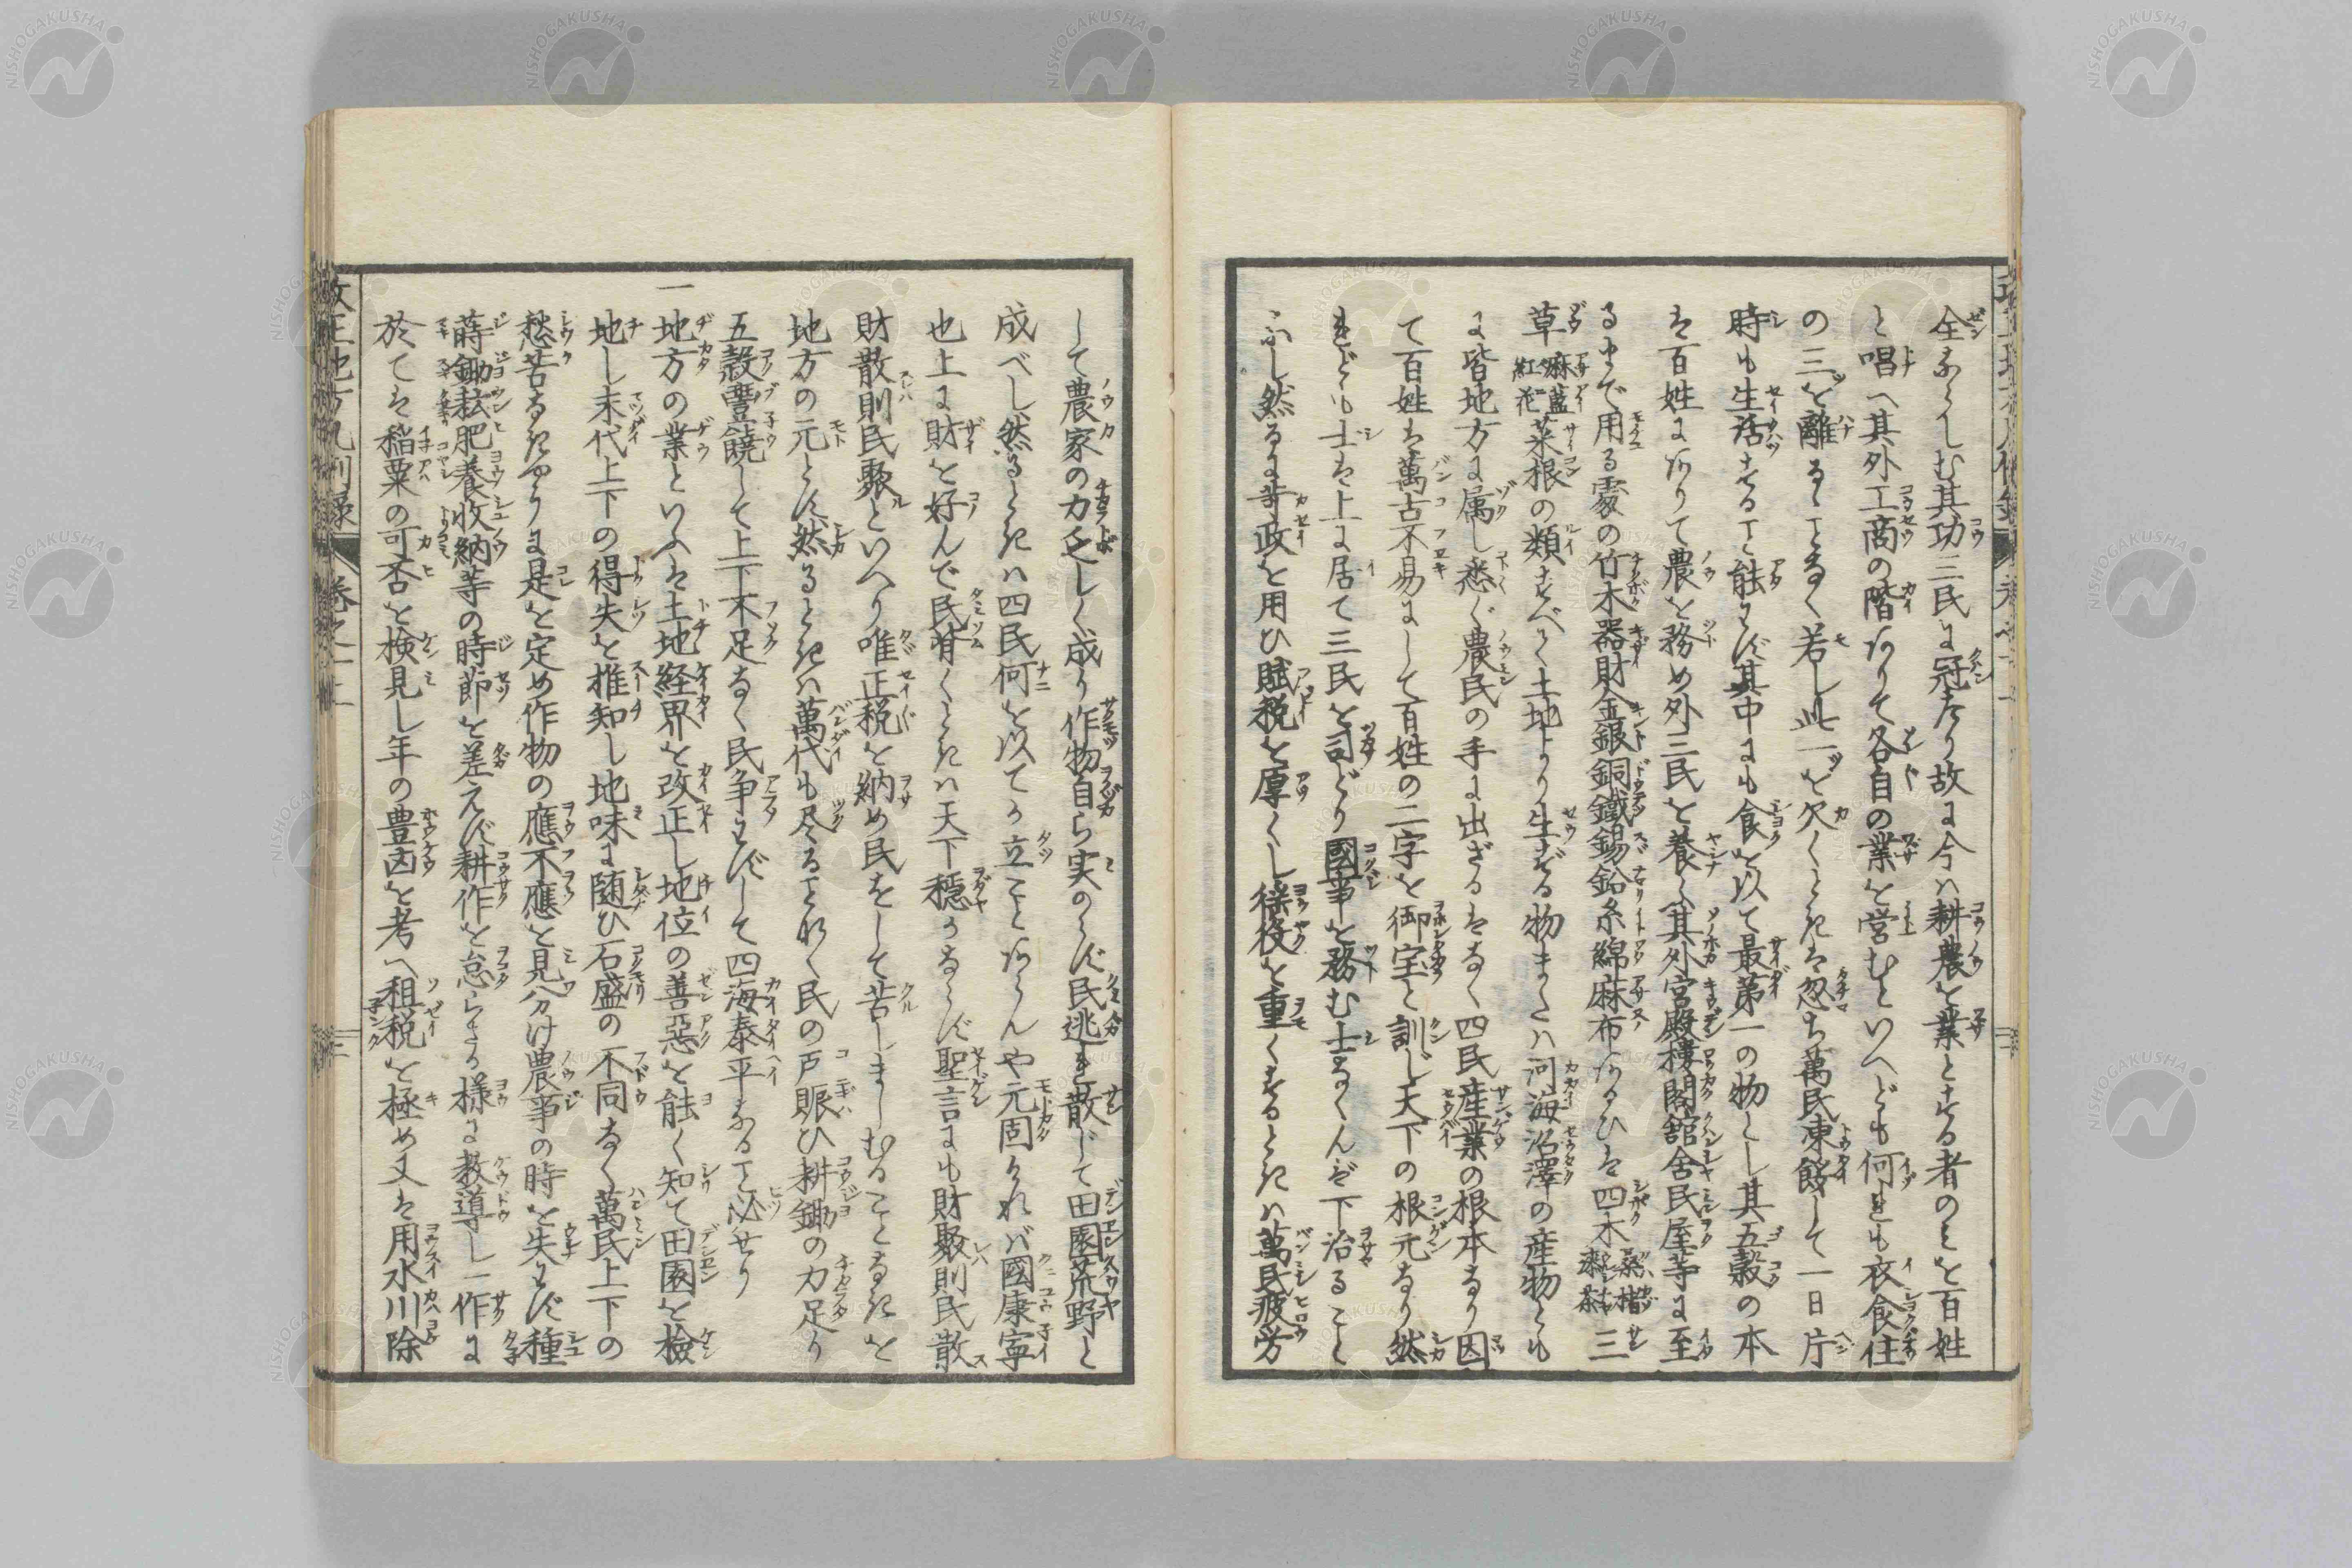 全ならしむ其功三民に冠たり故に今ハ耕農を業とする者のミを百姓
と唱へ其外工商の階ありて各自の業を営むといへども何れも衣食住
の三を離るヽことなく若し此一を欠くときは忽ち萬民凍餒して一日片
時も生活することを能はず其中にも食を以て最第一の物とし其五穀の本
は百姓にありて農を務め外三民を養ふ其外宮殿樓閣舘舎民屋等に至
るまで用る處の竹木器財金銀銅鐵錫鉛糸綿麻布あるひは四木桑楮漆茶三
草麻藍紅花菜根の類すべて土地より生ずる物または河海沼澤の産物とも
に皆地方に属し悉く農民の手に出ざるはなく四民産業の根本なり因
て百姓は萬古不易にして百姓の二字を御宝と訓じ天下の根元なり然
れども士は上に居て三民を司どり國事を務む士なくんば下治ること
なし然るに苛政を用ひ賦税を厚くし徭役を重くするときハ萬民疲労
して農家の力乏しく成り作物自ら実のらず民逃れ散じて田園荒野と
成べし然るときハ四民何を以てか立ことあらんや元固ければ國康寧
也上に財を好んで民背くときハ天下穏かならず聖言にも財聚則民散
財散則民聚といへり唯正税を納め民をして苦しましむることなきを
地方の元とす然るときハ萬代も尽ることなく民の戸賑ひ耕鋤の力足り
五穀豐饒して上下不足なく民争はずして四海泰平なること必せり
一地方の業といふは土地経界を改正し地位の善惡を能く知て田園を檢
地し末代上下の得失を推知し地味に随ひ石盛の不同なく萬民上下の
愁苦なきやうに是を定め作物の應不應を見分け農事の時を失はず種
蒔鋤耘肥養收納等の時節を差えず耕作を怠らざる様に教導し一作に
於ては稲粟の可否を検見し年の豊凶を考へ租税を極め又は用水川除
改正地方凡例録 巻之一上